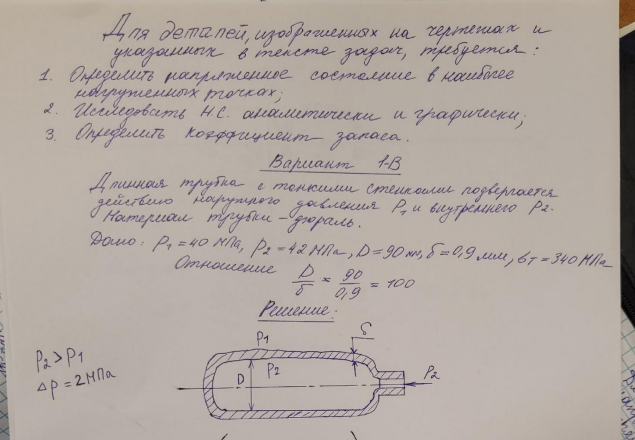 Для деталей, изображенных на чертежах и
указанных в тексте задач, требуется:
1. Определить напряженное состояние в наиболее
нагруженных точках;
2. Исследовать Н.С. аналитически и графически;
3. Определить коэффициент запаса.
Вариант 1-В
Длинная трубка с тонкими стенками подвергается
действию наружного давления P₁ и внутреннего P₂.
Материал трубки - дюраль.
Дано: P₁ = 40 МПа, P₂ = 42 МПа, D = 90 мм, δ = 0,9 мм, σт = 340 МПа
Отношение D/δ = 90/0,9 = 100
Решение:
P₂ > P₁
Δp = 2 МПа
P₁
δ
P₂
D
P₂